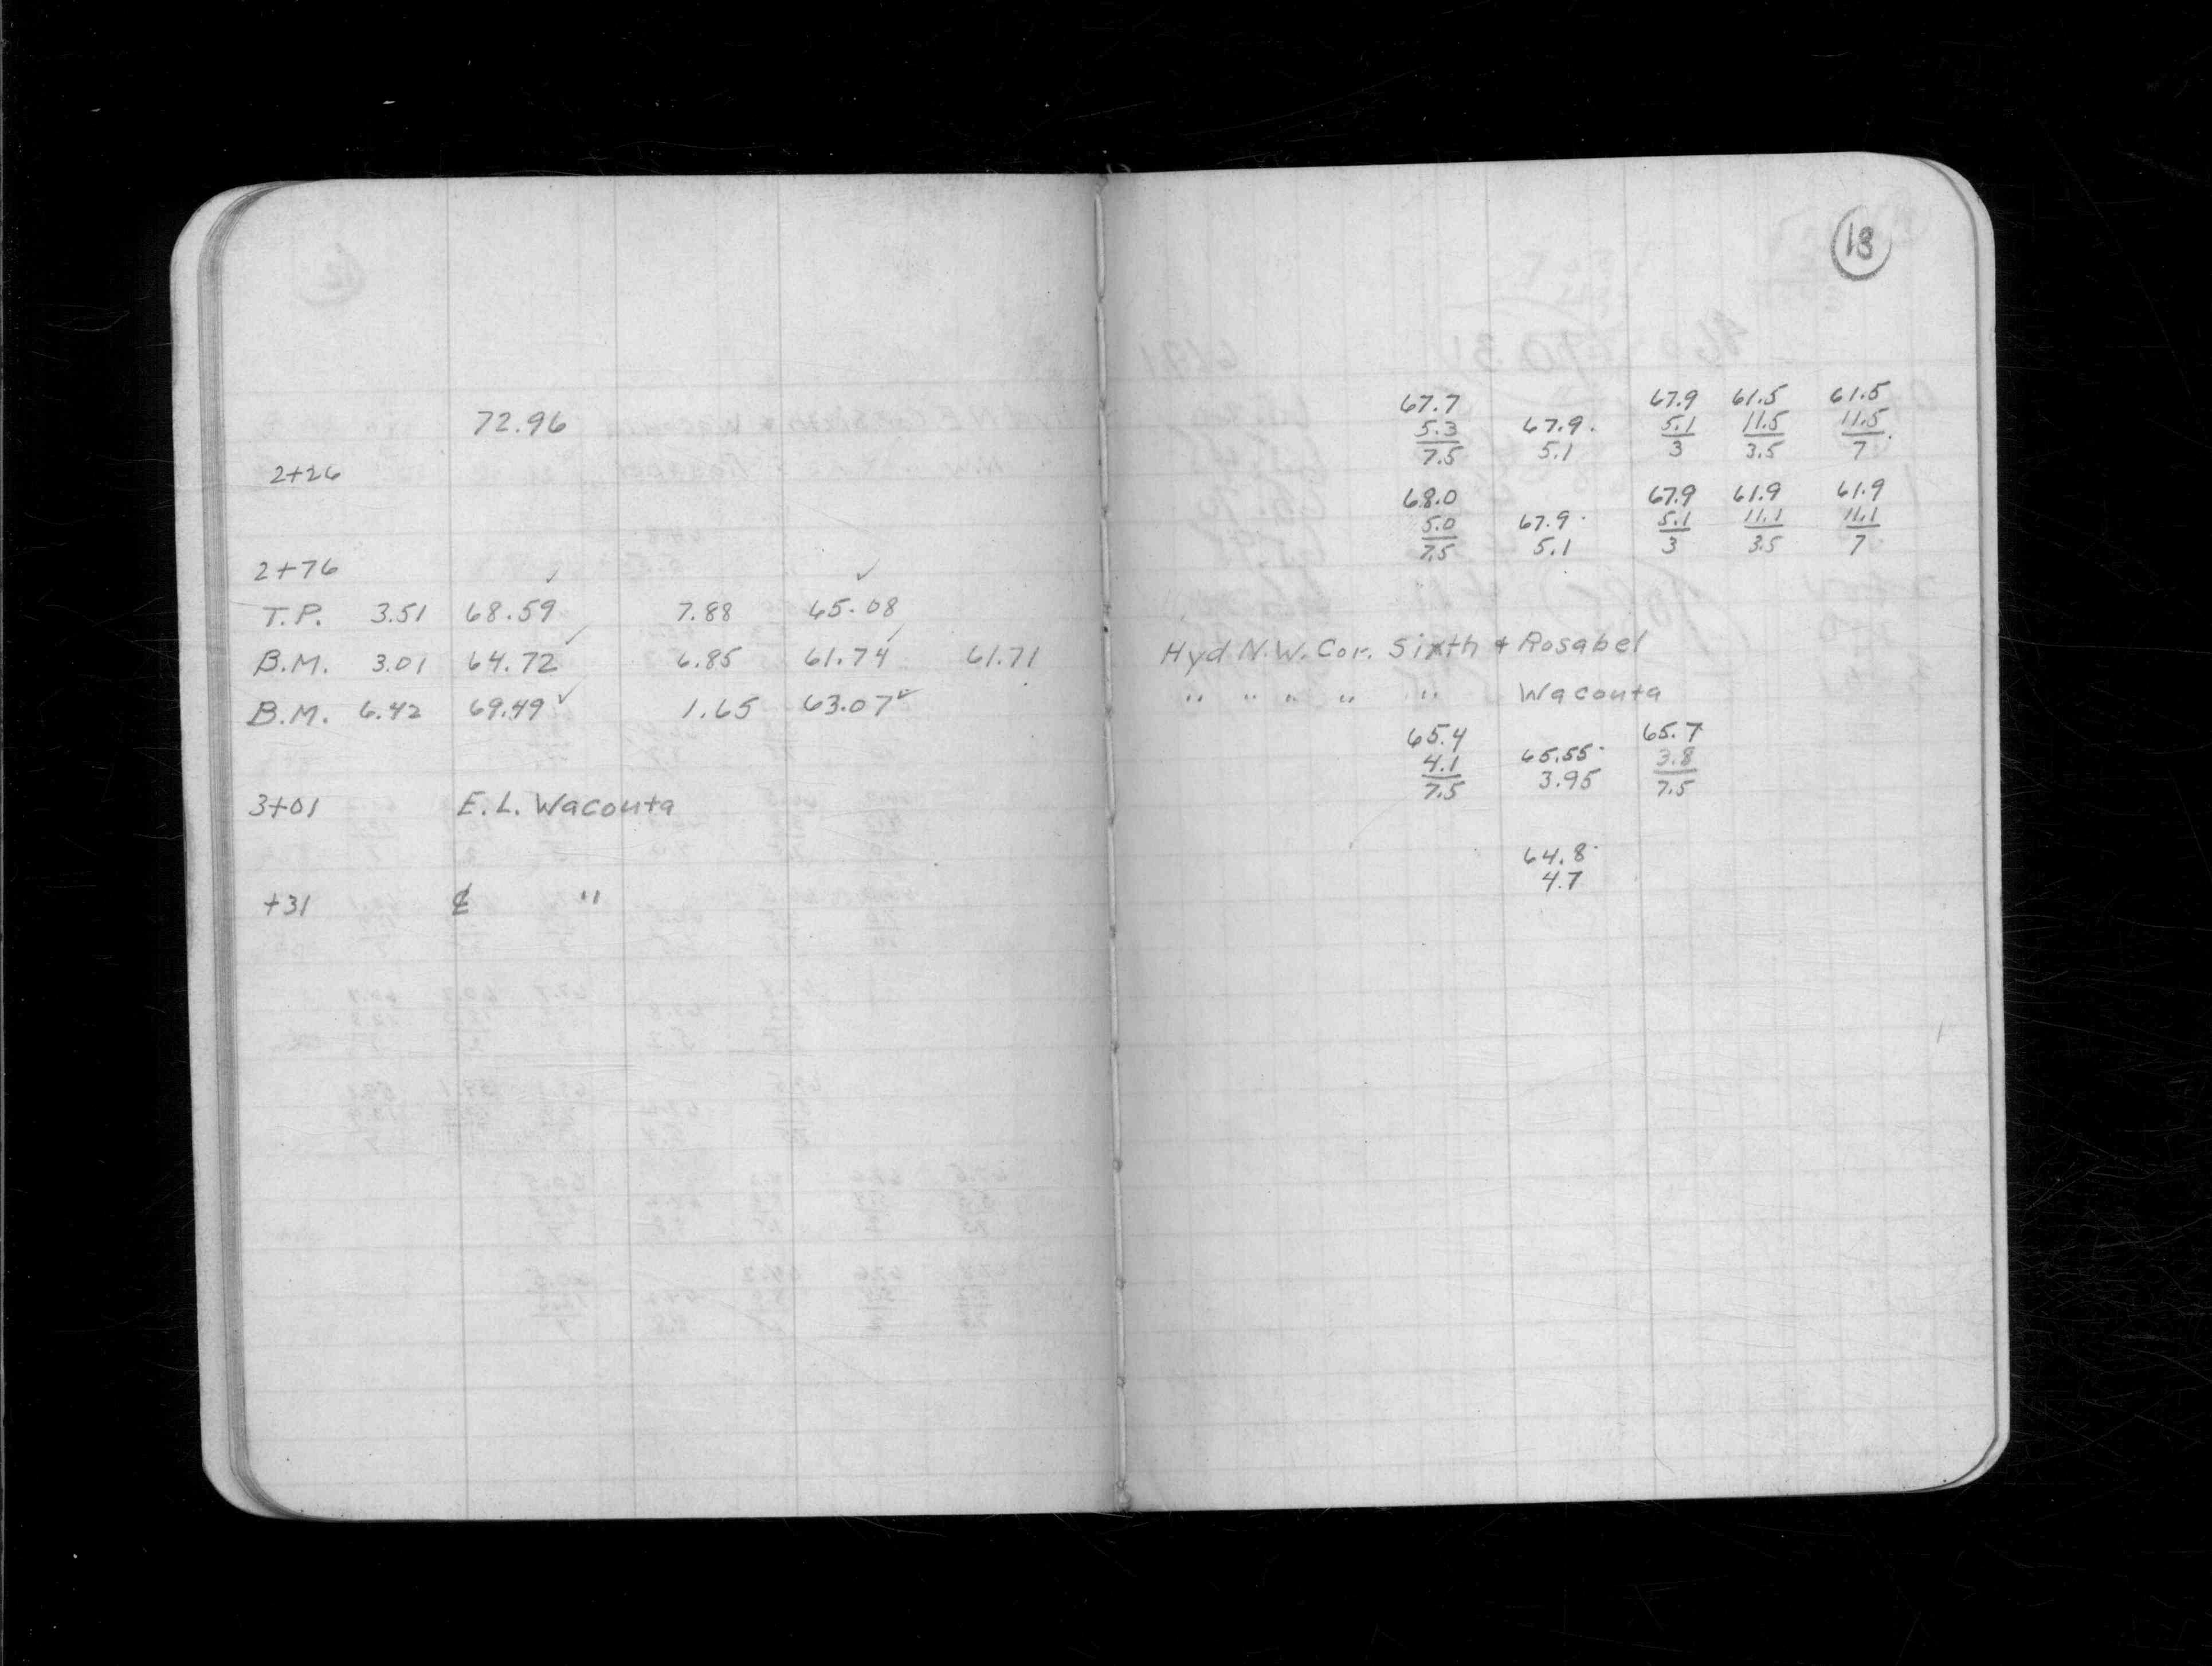 72.96
2+26
2+76
T.P. 3.51 68.59 ✓ 7.88 65.08 ✓
B.M. 3.01 64.72 ✓ 6.85 61.74 ✓ 61.71
B.M. 6.42 69.49 ✓ 1.65 63.07 ✓
3+01 E.L. Wacouta
+31 ₵ "
13
67.7 67.9 61.5 61.5
5.3 67.9. 5.1 11.5 11.5
7.5 5.1 3 3.5 7
68.0 67.9 61.9 61.9
5.0 67.9. 5.1 11.1 11.1
7.5 5.1 3 3.5 7
Hyd N.W. Cor. Sixth & Rosabel
" " " " " Wacouta
65.4 65.7
4.1 65.55. 3.8
7.5 3.95 7.5
64.8.
4.7